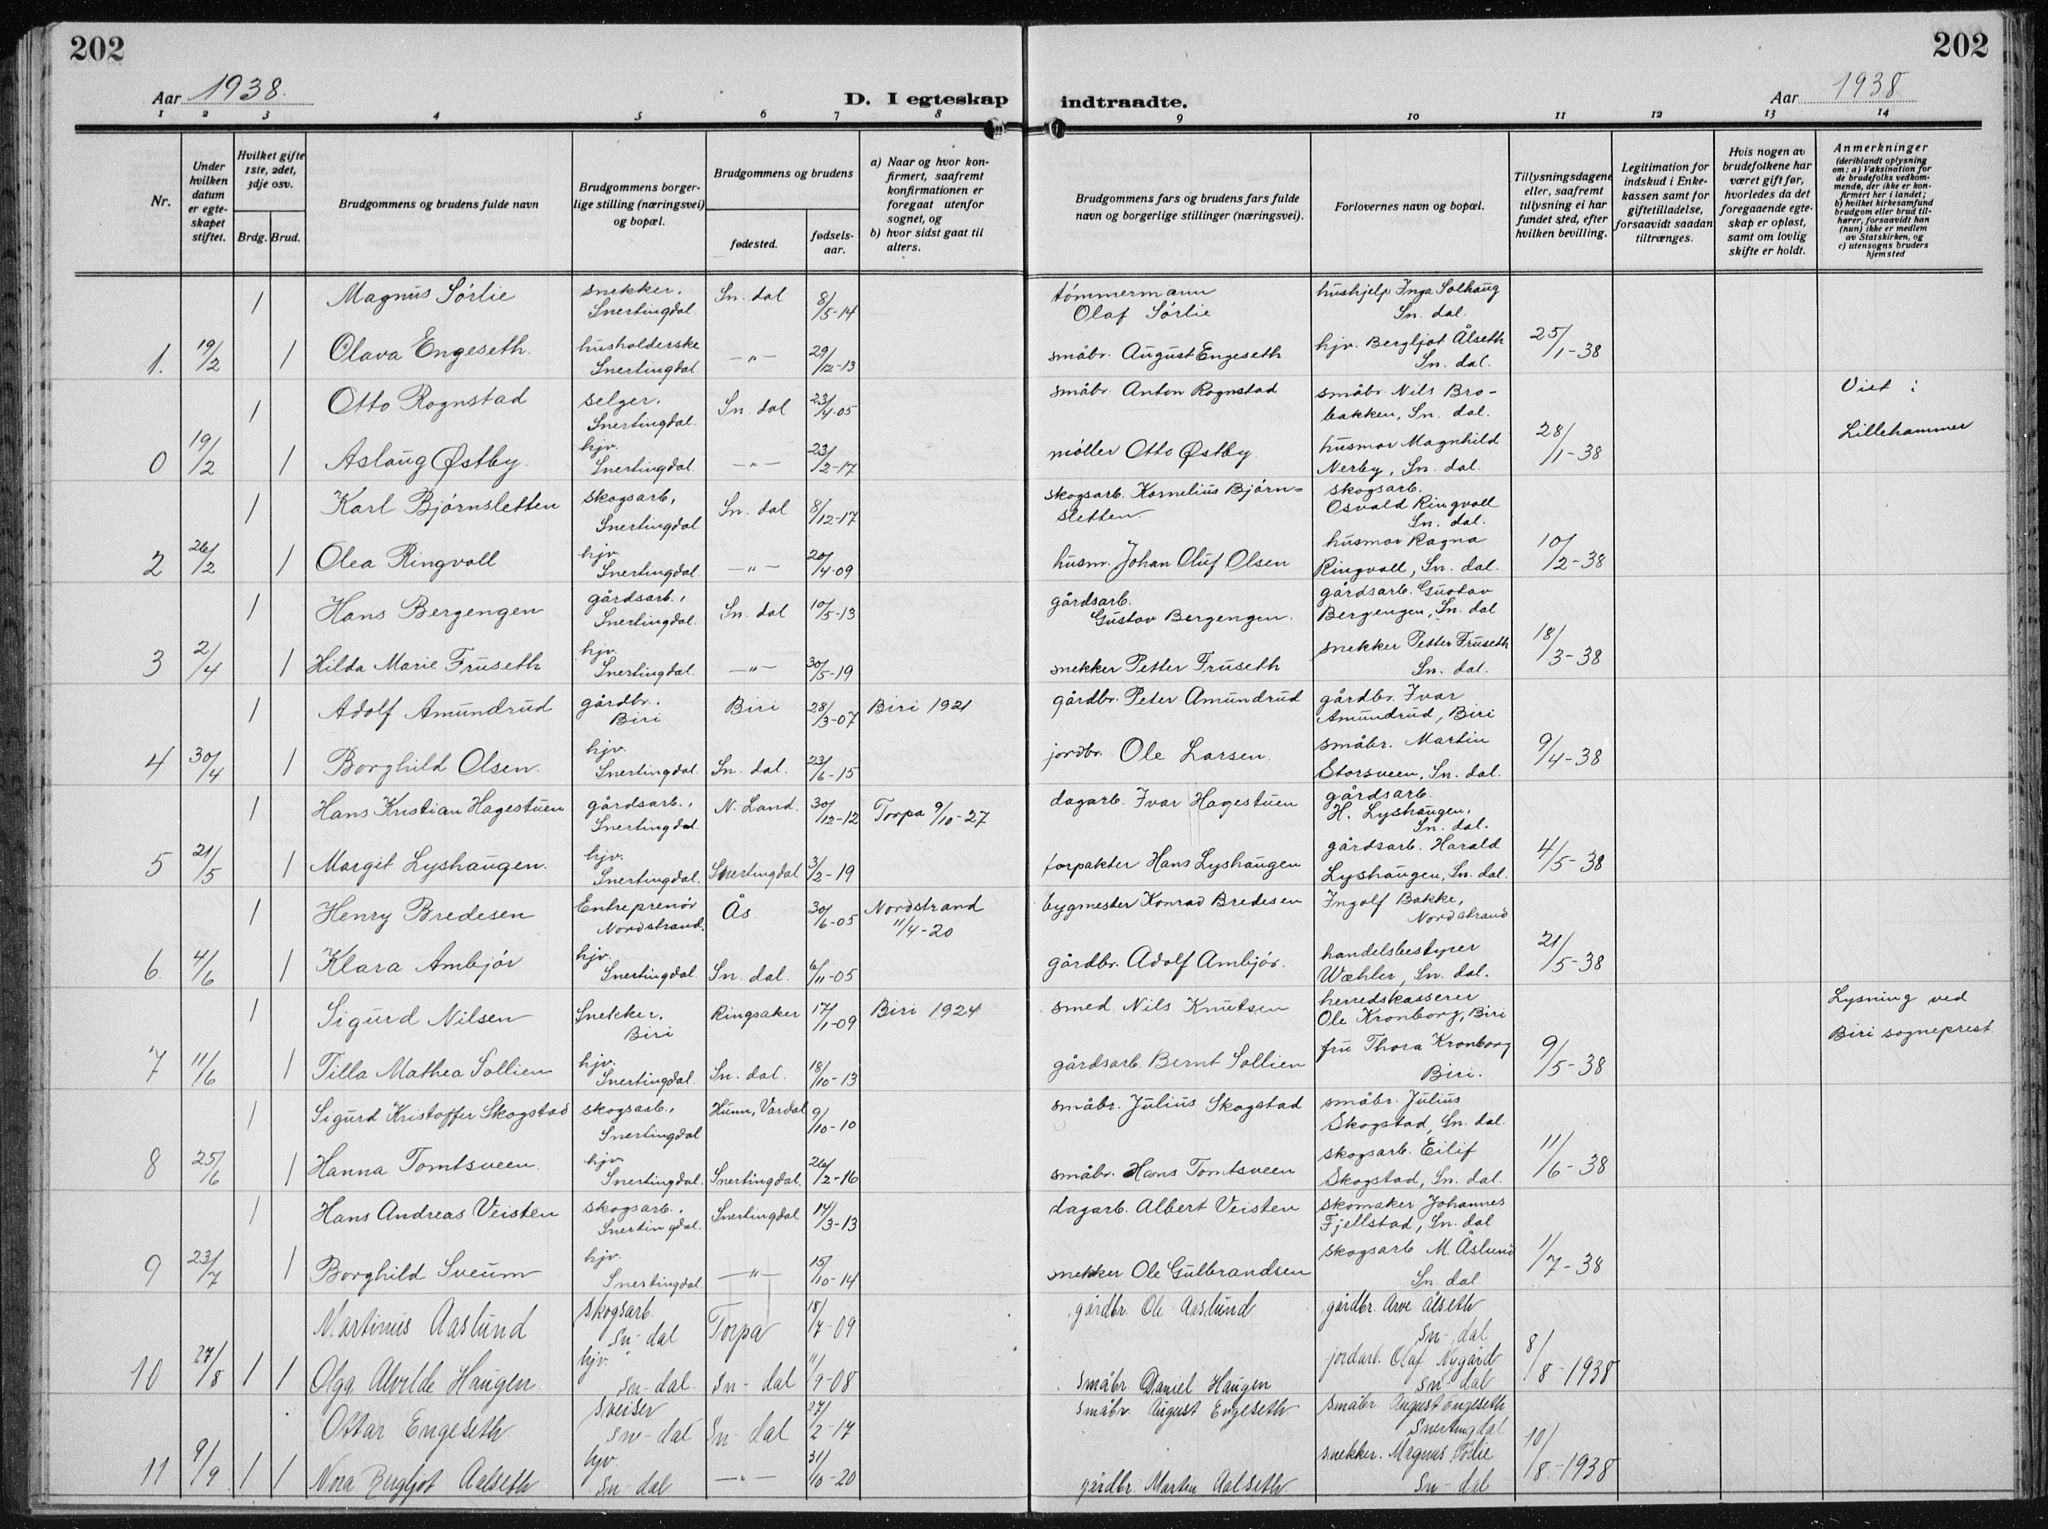 202
202
Aar 1938.
D. I egteskap indtraadte.
Aar 1938
1 2 3 4 5 6 7 8 9 10 11 12 13 14
Nr.
Under hvilken datum er egte-skapet stiftet.
Hvilket gifte 1ste, 2det, 3dje osv.
Brdg. Brud.
Brudgommens og brudens fulde navn
Brudgommens borger-lige stilling (næringsvei) og bopæl.
Brudgommens og brudens
fødested. fødsels-aar.
a) Naar og hvor kon-firmert, saafremt konfirmationen er foregaat utenfor sognet, og
b) hvor sidst gaat til alters.
Brudgommens fars og brudens fars fulde navn og borgerlige stillinger (næringsvei).
Forlovernes navn og bopæl.
Tillysningsdagene eller, saafremt tillysning ei har fundet sted, efter hvilken bevilling.
Legitimation for indskud i Enke-kassen samt for giftetilladelse, forsaavidt saadan tiltrænges.
Hvis nogen av brudefolkene har været gift før, hvorledes da det foregaaende egte-skap er opløst, samt om lovlig skifte er holdt.
Anmerkninger
(deriblandt oplysning om: a) Vaksination for de brudefolks vedkom-mende, der ikke er kon-firmert her i landet; b) hvilket kirkesamfund brudgom eller brud til-hører, forsaavidt han (nun) ikke er medlem av Statskirken, og c) utensogns bruders hjemsted
1 Magnus Sørlie snekker, Snertingdal Sn. dal 8/5-14 tømmermann Olaf Sørlie hushjelp Inga Solhaug Sn. dal.
1. 19/2 1 Olava Engeseth. husholderske Snertingdal -"- 29/12-13 småbr. August Engeseth hjv. Bergljot Ålseth Sn. dal. 25/1-38
1 Otto Rognstad selger, Snertingdal Sn. dal 23/4-05 småbr Anton Rognstad småbr. Nils Bro-bakken, Sn. dal. Viet i Lillehammer
0 19/2 1 Aslaug Østby. hjv. Snertingdal -"- 23/2-17 møller Otto Østby. husmor Magnhild Nerby, Sn. dal. 28/1-38
1 Karl Bjørnsletten skogsarb, Snertingdal Sn. dal 8/12-17 skogsarb. Kornelius Bjørn-sletten. skogsarb. Osvald Ringvoll Sn. dal.
2 26/2 1 Olea Ringvoll hjv. Snertingdal. -"- 20/4-09 husm. Johan Oluf Olsen husmor Ragna Ringvoll, Sn. dal. 10/2-38
1 Hans Bergengen gårdsarb., Snertingdal. Sn. dal 10/5-13 gårdsarb. Gustav Bergengen. gårdsarb. Gustav Bergengen, Sn. dal
3 2/4 1 Hilda Marie Fruseth hjv. Snertingdal. -"- 30/5-19 snekker Petter Fruseth snekker Petter Fruseth Sn. dal. 18/3-38
1 Adolf Amundrud gårdbr. Biri Biri 28/3-07 Biri 1921 gårdbr. Peter Amundrud gårdbr. Ivar Amundrud, Biri
4 30/4 1 Borghild Olsen. hjv. Snertingdal. Sn. dal. 23/6-15 jordbr. Ole Larsen. småbr. Martin Storsveen, Sn. dal. 9/4-38
1 Hans Kristian Hagestuen gårdsarb., Snertingdal N. Land. 30/12-12 Torpa 9/10-27 dagarb. Ivar Hagestuen gårdsarb. H. Lyshaugen, Sn. dal.
5 21/5 1 Margit Lyshaugen. hjv. Snertingdal. Snertingdal 3/2-19 forpakter Hans Lyshaugen gårdsarb. Harald Lyshaugen, Sn. dal. 4/5-38
1 Henry Bredesen Entreprenør Nordstrand. Ås 30/6-05 Nordstrand 11/4-20 bygmester Konrad Bredesen Ingolf Bakke, Nordstrand
6. 4/6 1 Klara Ambjør hjv. Snertingdal. Sn. dal. 6/11-05 gårdbr. Adolf Ambjør. handelsbestyrer Wæhler, Sn. dal. 21/5-38
1 Sigurd Nilsen Snekker, Biri Ringsaker 17/1-09 Biri 1924 smed Nils Knutsen herredskasserer Ole Kronborg, Biri Lysning ved Biri sogneprest.
7 11/6 1 Tilla Mathea Sollien hjv. Snertingdal. Sn. dal. 18/10-13 gårdsarb. Bernt Sollien fru Thora Kronborg Biri. 9/5-38
1 Sigurd Kristoffer Skogstad skogsarb., Snertingdal Hunn, Vardal 9/10-10 småbr. Julius Skogstad småbr. Julius Skogstad, Sn. dal.
8 25/6 1 Hanna Tomtsveen. hjv. Snertingdal. Snertingdal. 26/2-16 småbr. Hans Tomtsveen skogsarb. Eilif Skogstad, Sn. dal. 11/6-38
1 Hans Andreas Veisten skogsarb., Snertingdal. Snertingdal 14/3-13 dagarb. Albert Veisten skomaker Johannes Fjellstad, Sn. dal
9 23/7 1 Borghild Sveum hjv. Snertingdal. -"- 15/10-14 snekker Ole Gulbrandsen skogsarb M. Åslund Sn. dal 1/7-38
Martinus Aaslund skogsarb. Sn-dal Torpa 18/7-09 gårdbr. Ole Aaslund gårdbr. Arve Ålseth Sn-dal
10 27/8 1 1 Olga Alvilde Haugen. hjv. Sn-dal. Sn-dal 11/9-08 småbr. Daniel Haugen jordarb. Olaf Nygård Sn-dal 8/8-1938
Ottar Engeseth sveiser Sn-dal Sn-dal 27/2-17 småbr. August Engeseth småbr. August Engeseth Snertingdal
11 9/9 1 1 Nora Bergljot Aalseth hjv Sn-dal -"- 31/10-20 gårdbr. Martin Aalseth snekker. Magnus Sørlie Sn-dal 10/8-1938